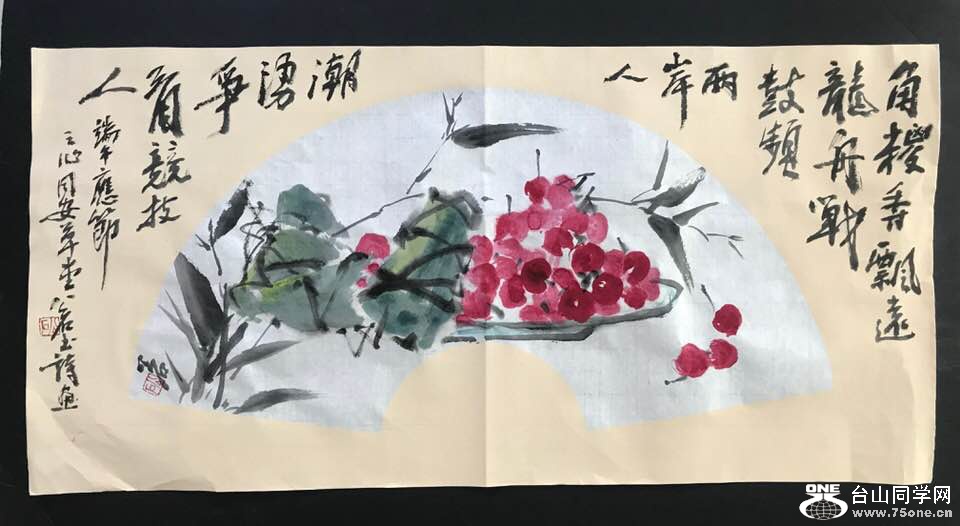 角糉香飄遠
龍舟戰
鼓頻
兩岸人
潮湧爭看競技
人
端午應節
同安草堂
詩画
ONE
台山同学网
www.75one.cn